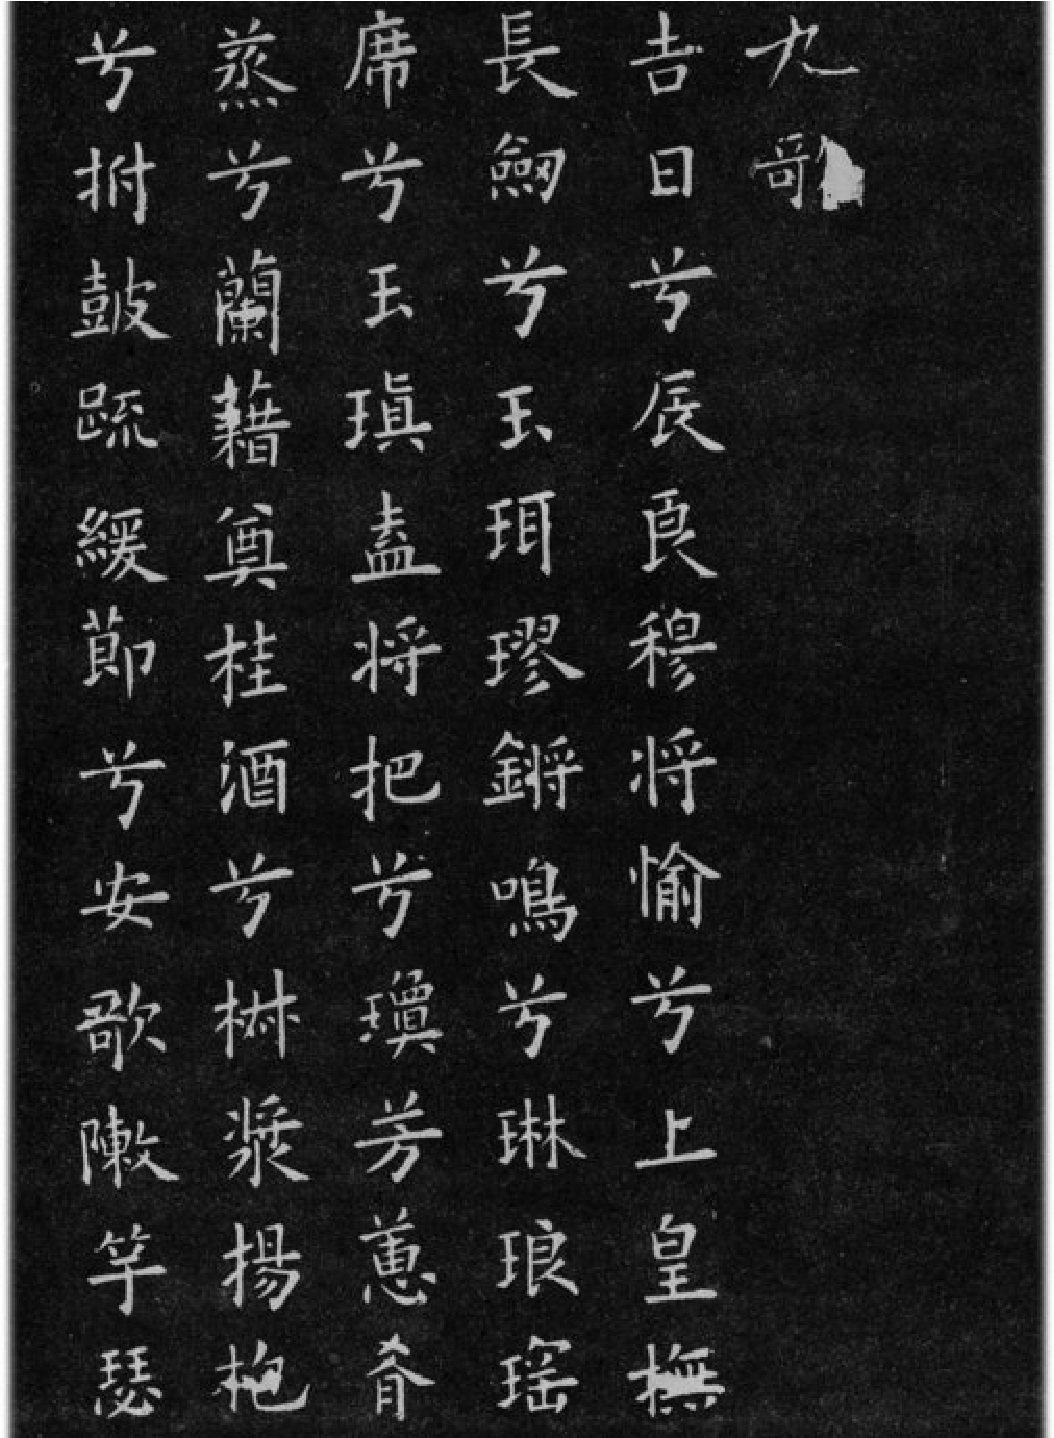 九歌
吉日兮辰良穆将愉兮上皇撫
長劔兮玉珥璆鏘鳴兮琳琅瑶
席兮玉瑱盍将把兮瓊芳蕙肴
蒸兮蘭藉奠桂酒兮椒漿揚枹
兮拊鼓疏緩節兮安歌敶竽瑟